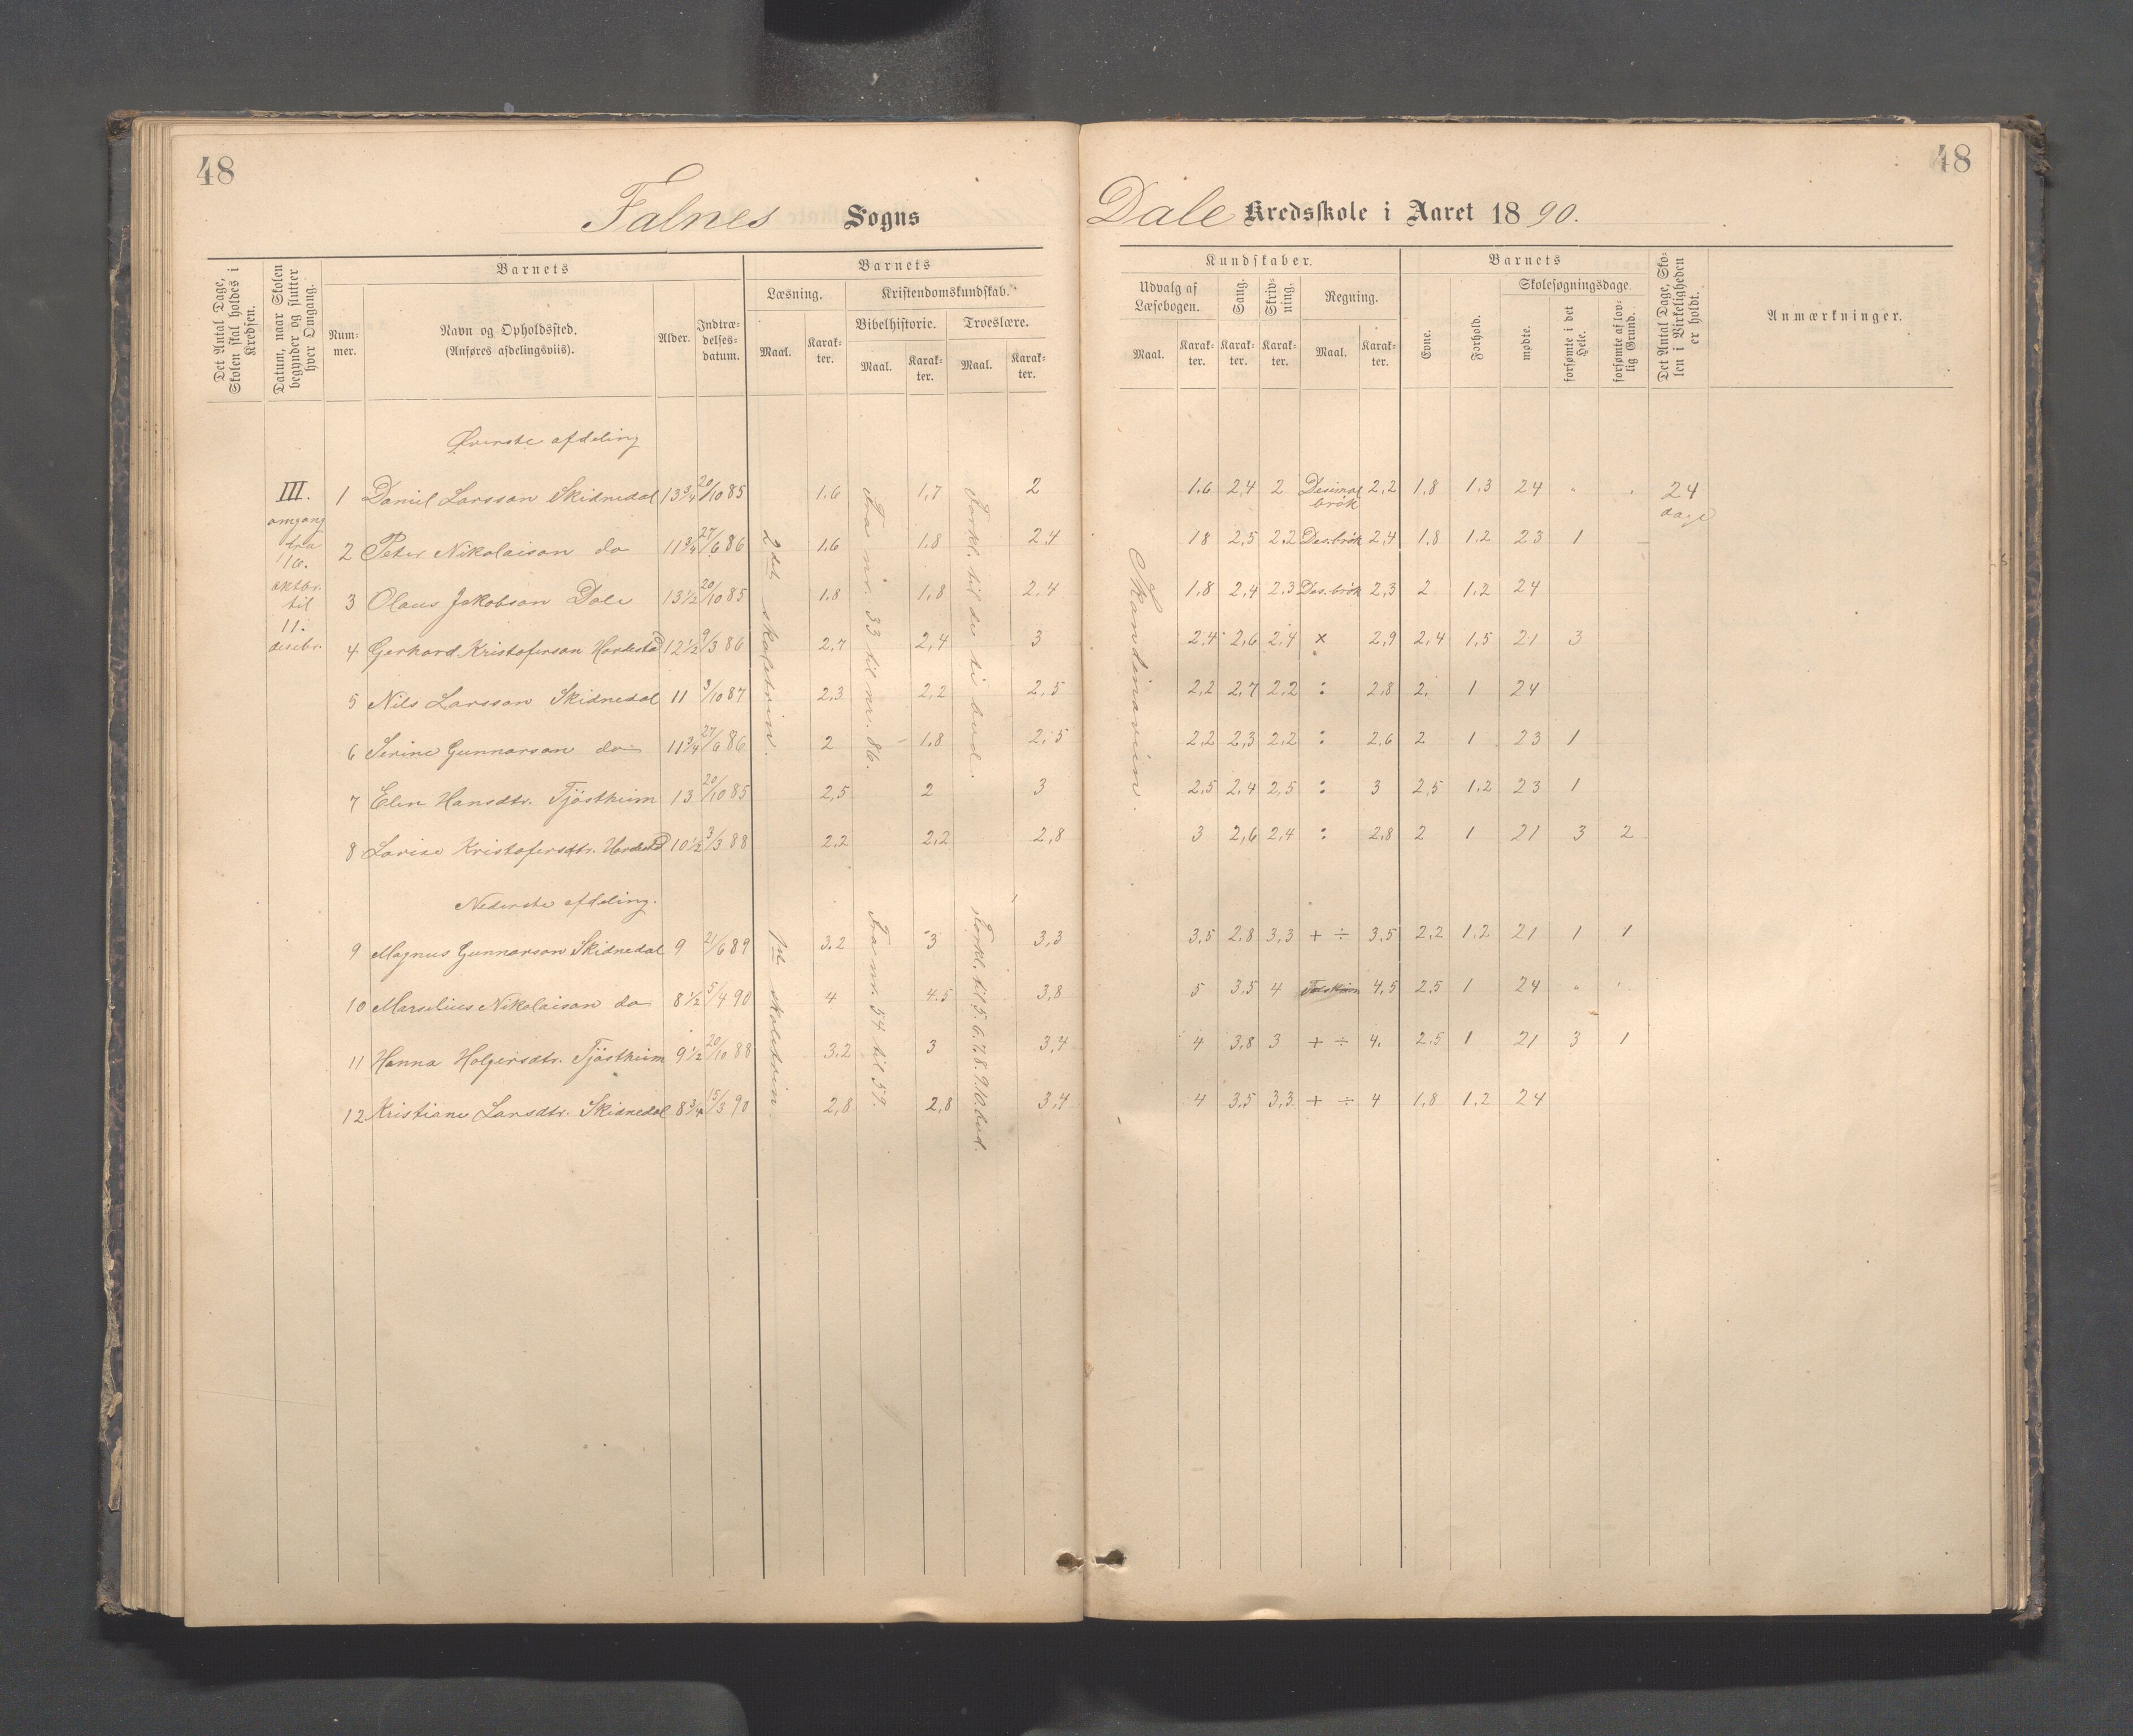 48
48
Falnes Sogns
Dale Kredsskole i Aaret 1890.
Det Antal Dage, Skolen skal holdes i Kredsen.
Datum, naar Skolen begynder og slutter hver Omgang.
Barnets
Nummer.
Navn og Opholdssted.
(Anføres afdelingsviis).
Alder.
Indtrædelsesdatum.
Barnets
Læsning.
Maal.
Karakter.
Kristendomskundskab.
Bibelhistorie.
Maal.
Karakter.
Troeslære.
Maal.
Karakter.
Kundskaber.
Udvalg af Læsebogen.
Maal.
Karakter.
Sang.
Karakter.
Skrivning.
Karakter.
Regning.
Maal.
Karakter.
Barnets
Evne.
Forhold.
Skolesøgningsdage.
mødte.
forsømte i det Hele.
forsømte af lovlig Grund.
Det Antal Dage, Skolen i Virkeligheden er holdt.
Anmærkninger.
Øverste afdeling
III. omgang fra 16. oktbr. til 11. desebr.
2det skoletrin.
Fra nr. 33 til nr. 86.
Forkl. til de ti bud.
Skandinavien.
1 Daniel Larsson Skidnedal 13 3/4 20/10 85 1.6 1,7 2 1.6 2,4 2 Desimalbrök 2,2 1,8 1.3 24 " " 24 dage
2 Peter Nikolaison do 11 3/4 27/6 86 1.6 1.8 2.4 18 2,5 2.2 Des.brök 2,4 1,8 1.2 23 1
3 Olaus Jakobson Dale 13 1/2 20/10 85 1.8 1,8 2,4 1,8 2,4 2.3 Des.brök 2,3 2 1.2 24
4 Gerhard Kristoferson 12 1/2 9/3 86 2,7 2,4 3 2,4 2,6 2,4 x 2,9 2,4 1,5 21 3
5 Nils Larsson Skidnedal 11 3/10 87 2,3 2,2 2,5 2,2 2,7 2,2 : 2,8 2. 1 24
6 Serine Gunnarson do 11 3/4 27/6 86 2 1.8 2,5 2,2 2,3 2,2 : 2.6 2 1 23 1
7 Elen Hansdtr. Tjöstheim 13 20/10 85 2,5 2 3 2.5 2,4 2,5 : 3 2,5 1.2 23 1
8 Lovise Kristofersdtr. 10 1/2 3/3 88 2,2 2,2 2,8 3 2,6 2,4 : 2,8 2 1 21 3 2
Nederste afdeling.
1ste skoletrin
Fra nr. 54 til 59.
Forkl. til 5. 6. 7. 8. 9. 10. bud.
9 Magnus Gunnarson Skidnedal 9 21/6 89 3.2 3 3,3 3,5 2.8 3,3 + ÷ 3.5 2,2 1.2 21 1 1
10 Marselius Nikolaison do 8 1/2 5/4 90 4 4.5 3,8 5 3.5 4 4,5 2.5 1 24 "
11 Hanna Holgersdtr. Tjöstheim 9 1/2 20/10 88 3,2 3 3,4 4 3,8 3 + ÷ 4. 2.5 1 21 3 1
12 Kristiane Larsdtr. Skidnedal 8 3/4 15/3 90 2,8 2,8 3,4 4 3.5 3,3 + ÷ 4 1,8 1.2 24